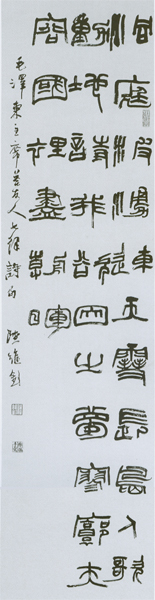 洞庭波湧連天雪長島人歌
動地詩我欲因之夢寥廓芙
蓉國裡盡朝暉
毛澤東主席答友人七律詩句